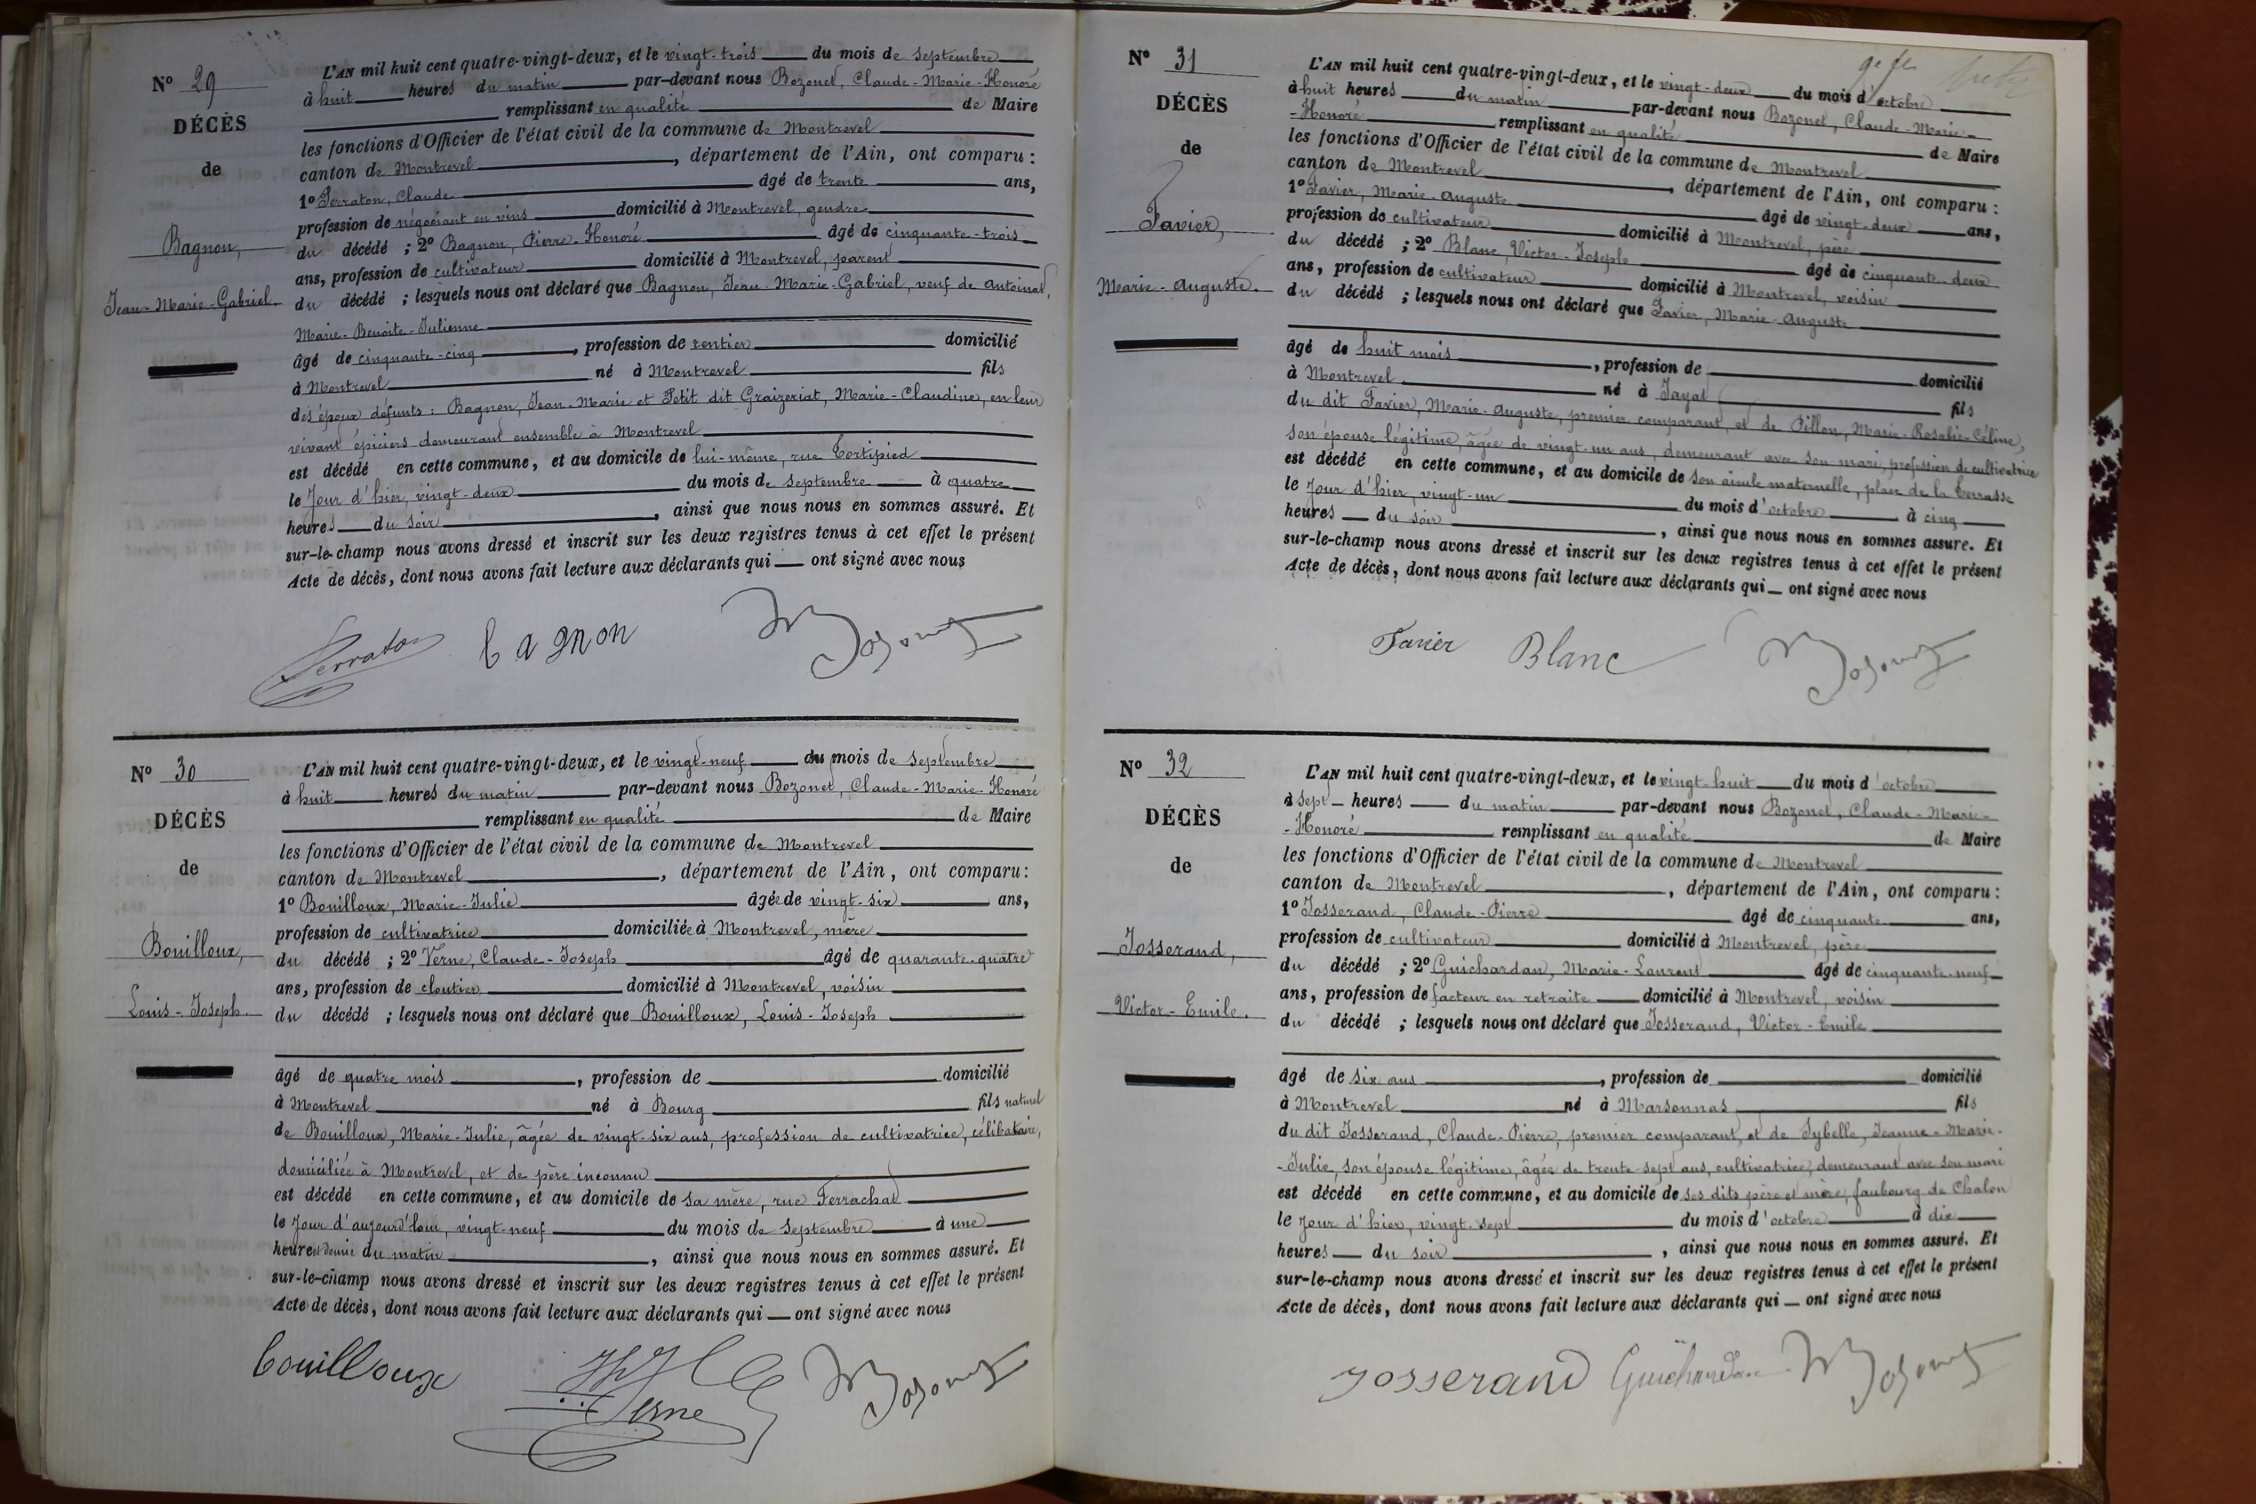 N° 29
DÉCÈS
de
Bagnon,
Jean-Marie-Gabriel.
L'AN mil huit cent quatre-vingt-deux, et le vingt-trois du mois de septembre
à huit heures du matin par-devant nous Bozonet, Claude-Marie-Honoré
remplissant en qualité de Maire
les fonctions d'Officier de l'état civil de la commune de Montrevel
canton de Montrevel, département de l'Ain, ont comparu :
1° Ferraton, Claude âgé de trente ans,
profession de négociant en vins domicilié à Montrevel, gendre
du décédé ; 2° Bagnon, Pierre-Honoré âgé de cinquante-trois
ans, profession de cultivateur domicilié à Montrevel, parent
du décédé ; lesquels nous ont déclaré que Bagnon, Jean-Marie-Gabriel, veuf de Antoinat,
Marie-Benoite-Julienne
âgé de cinquante-cinq, profession de rentier domicilié
à Montrevel né à Montrevel fils
des époux défunts : Bagnon, Jean-Marie et Petit dit Graizeriat, Marie-Claudine, en leur
vivant épiciers demeurant ensemble à Montrevel
est décédé en cette commune, et au domicile de lui-même, rue Cortipied
le jour d'hier, vingt-deux du mois de septembre à quatre
heures du soir, ainsi que nous nous en sommes assuré. Et
sur-le-champ nous avons dressé et inscrit sur les deux registres tenus à cet effet le présent
Acte de décès, dont nous avons fait lecture aux déclarants qui ont signé avec nous
Ferraton Bagnon Bozonet
N° 30
DÉCÈS
de
Bouilloux,
Louis-Joseph.
L'AN mil huit cent quatre-vingt-deux, et le vingt-neuf du mois de septembre
à huit heures du matin par-devant nous Bozonet, Claude-Marie-Honoré
remplissant en qualité de Maire
les fonctions d'Officier de l'état civil de la commune de Montrevel
canton de Montrevel, département de l'Ain, ont comparu :
1° Bouilloux, Marie-Julie âgée de vingt-six ans,
profession de cultivatrice domiciliée à Montrevel, mère
du décédé ; 2° Verne, Claude-Joseph âgé de quarante-quatre
ans, profession de cloutier domicilié à Montrevel, voisin
du décédé ; lesquels nous ont déclaré que Bouilloux, Louis-Joseph
âgé de quatre mois, profession de domicilié
à Montrevel né à Bourg fils naturel
de Bouilloux, Marie-Julie, âgée de vingt-six ans, profession de cultivatrice, célibataire,
domiciliée à Montrevel, et de père inconnu
est décédé en cette commune, et au domicile de sa mère, rue Ferrachat
le jour d'aujourd'hui, vingt-neuf du mois de septembre à une
heure et demie du matin, ainsi que nous nous en sommes assuré. Et
sur-le-champ nous avons dressé et inscrit sur les deux registres tenus à cet effet le présent
Acte de décès, dont nous avons fait lecture aux déclarants qui ont signé avec nous
bouilloux Verne Bozonet
N° 31
DÉCÈS
de
Favier,
Marie-Auguste.
L'AN mil huit cent quatre-vingt-deux, et le vingt-deux du mois d'octobre
à huit heures du matin par-devant nous Bozonet, Claude-Marie-
-Honoré remplissant en qualité de Maire
les fonctions d'Officier de l'état civil de la commune de Montrevel
canton de Montrevel, département de l'Ain, ont comparu :
1° Favier, Marie-Auguste âgé de vingt-deux ans,
profession de cultivateur domicilié à Montrevel, père
du décédé ; 2° Blanc, Victor-Joseph âgé de cinquante-deux
ans, profession de cultivateur domicilié à Montrevel, voisin
du décédé ; lesquels nous ont déclaré que Favier, Marie-Auguste
âgé de huit mois, profession de domicilié
à Montrevel né à Jayat fils
du dit Favier, Marie-Auguste, premier comparant, et de Pillon, Marie-Rosalie-Céline,
son épouse légitime, âgée de vingt-un ans, demeurant avec son mari, profession de cultivatrice
est décédé en cette commune, et au domicile de son aïeule maternelle, place de la Terrasse
le jour d'hier, vingt-un du mois d'octobre à cinq
heures du soir, ainsi que nous nous en sommes assuré. Et
sur-le-champ nous avons dressé et inscrit sur les deux registres tenus à cet effet le présent
Acte de décès, dont nous avons fait lecture aux déclarants qui ont signé avec nous
Favier Blanc Bozonet
N° 32
DÉCÈS
de
Josserand,
Victor-Emile.
L'AN mil huit cent quatre-vingt-deux, et le vingt-huit du mois d'octobre
à sept heures du matin par-devant nous Bozonet, Claude-Marie-
-Honoré remplissant en qualité de Maire
les fonctions d'Officier de l'état civil de la commune de Montrevel
canton de Montrevel, département de l'Ain, ont comparu :
1° Josserand, Claude-Pierre âgé de cinquante ans,
profession de cultivateur domicilié à Montrevel, père
du décédé ; 2° Guichardan, Marie-Laurent âgé de cinquante-neuf
ans, profession de facteur en retraite domicilié à Montrevel, voisin
du décédé ; lesquels nous ont déclaré que Josserand, Victor-Emile
âgé de six ans, profession de domicilié
à Montrevel né à Marsonnas fils
du dit Josserand, Claude-Pierre, premier comparant, et de Sybelle, Jeanne-Marie-
-Julie, son épouse légitime, âgée de trente-sept ans, cultivatrice, demeurant avec son mari
est décédé en cette commune, et au domicile de ses dits père et mère, faubourg de Chalon
le jour d'hier, vingt-sept du mois d'octobre à dix
heures du soir, ainsi que nous nous en sommes assuré. Et
sur-le-champ nous avons dressé et inscrit sur les deux registres tenus à cet effet le présent
Acte de décès, dont nous avons fait lecture aux déclarants qui ont signé avec nous
Josserand Guichardan Bozonet